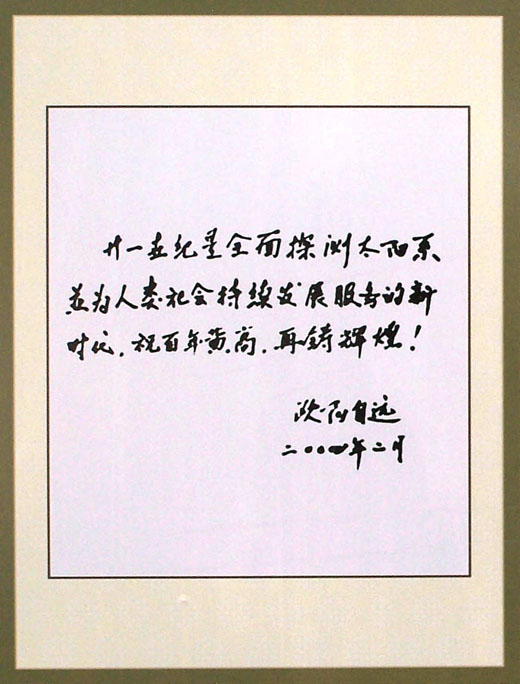 廿一世纪是全面探测太阳系
并为人类社会持续发展服务的新
时代，祝百年黄高，再铸辉煌！
欧阳自远
二〇〇四年二月